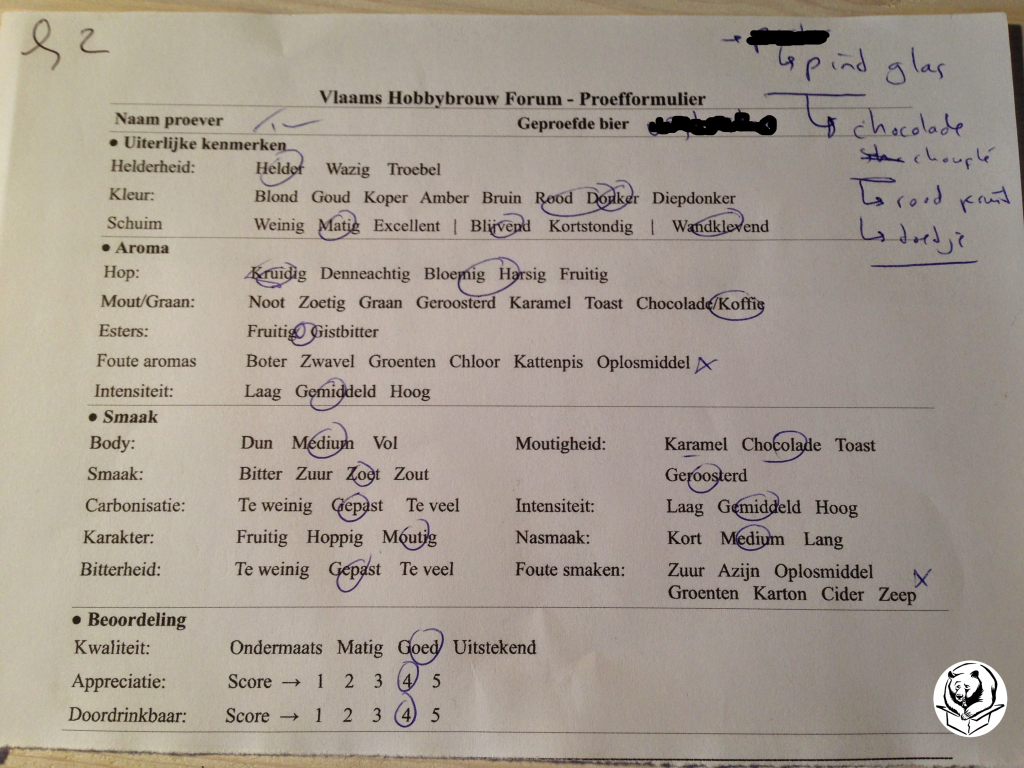 2
pind glas
Vlaams Hobbybrouw Forum - Proefformulier
Naam proever
Geproefde bier
chocolade
• Uiterlijke kenmerken
Helderheid: Helder Wazig Troebel
Kleur: Blond Goud Koper Amber Bruin Rood Donker Diepdonker
rood
Schuim Weinig Matig Excellent | Blijvend Kortstondig | Wandklevend
• Aroma
Hop: Kruidig Denneachtig Bloemig Harsig Fruitig
Mout/Graan: Noot Zoetig Graan Geroosterd Karamel Toast Chocolade/Koffie
Esters: Fruitig Gistbitter
Foute aromas Boter Zwavel Groenten Chloor Kattenpis Oplosmiddel
Intensiteit: Laag Gemiddeld Hoog
• Smaak
Body: Dun Medium Vol Moutigheid: Karamel Chocolade Toast
Smaak: Bitter Zuur Zoet Zout Geroosterd
Carbonisatie: Te weinig Gepast Te veel Intensiteit: Laag Gemiddeld Hoog
Karakter: Fruitig Hoppig Moutig Nasmaak: Kort Medium Lang
Bitterheid: Te weinig Gepast Te veel Foute smaken: Zuur Azijn Oplosmiddel
Groenten Karton Cider Zeep
• Beoordeling
Kwaliteit: Ondermaats Matig Goed Uitstekend
Appreciatie: Score → 1 2 3 4 5
Doordrinkbaar: Score → 1 2 3 4 5